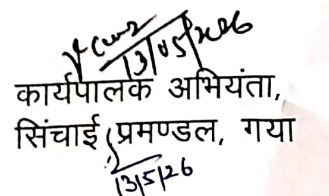 13/05/2026
कार्यपालक अभियंता,
सिंचाई प्रमण्डल, गया
13/5/26